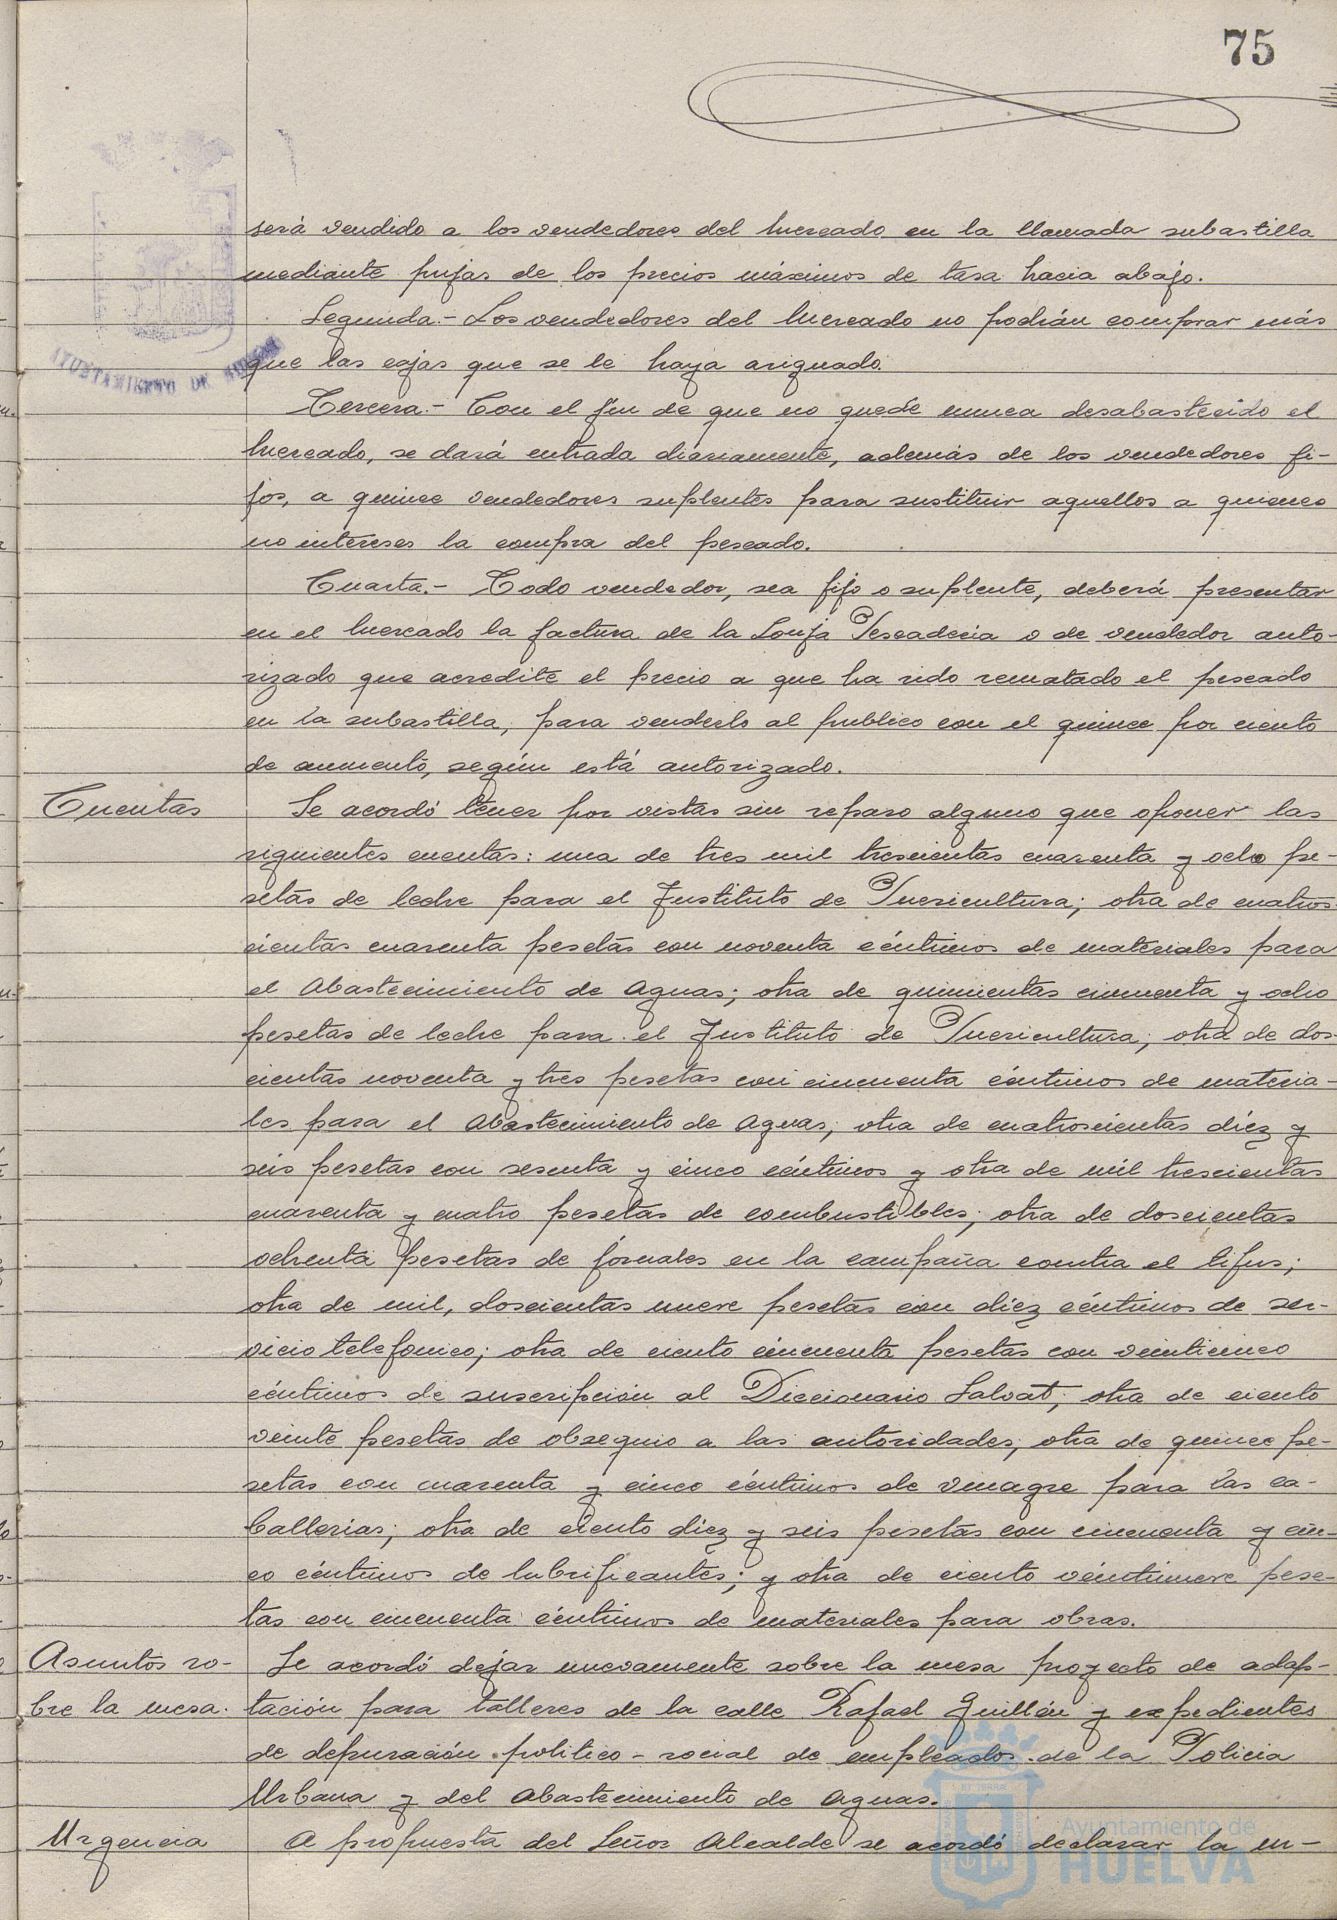 75
AYUNTAMIENTO DE HUELVA
será vendido a los vendedores del Mercado en la llamada subastilla
mediante pujas de los precios máximos de tasa hacia abajo.
Segunda.- Los vendedores del Mercado no podrán comprar más
que las cajas que se le haya asignado.
Tercera.- Con el fin de que no quede nunca desabastecido el
Mercado, se dará entrada diariamente, además de los vendedores fi-
jos, a quince vendedores suplentes para sustituir aquellos a quienes
no interese la compra del pescado.
Cuarta.- Todo vendedor, sea fijo o suplente, deberá presentar
en el Mercado la factura de la Lonja Pescaderia o de vendedor auto-
rizado que acredite el precio a que ha sido rematado el pescado
en la subastilla, para venderlo al publico con el quince por ciento
de aumento, según está autorizado.
Cuentas Se acordó tener por vistas sin reparo alguno que oponer las
siguientes cuentas: una de tres mil trescientas cuarenta y ocho pe-
setas de leche para el Instituto de Puericultura; otra de cuatros-
cientas cuarenta pesetas con noventa céntimos de materiales para
el Abastecimiento de Aguas; otra de quinientas cincuenta y ocho
pesetas de leche para el Instituto de Puericultura; otra de dos-
cientas noventa y tres pesetas con cincuenta céntimos de materia-
les para el Abastecimiento de Aguas; otra de cuatroscientas diez y
seis pesetas con sesenta y cinco céntimos y otra de mil trescientas
cuarenta y cuatro pesetas de combustibles; otra de doscientas
ochenta pesetas de jornales en la campaña contra el tifus;
otra de mil, doscientas nueve pesetas con diez céntimos de ser-
vicio telefonico; otra de ciento cincuenta pesetas con veinticinco
céntimos de suscripción al Diccionario Salvat; otra de ciento
veinte pesetas de obsequio a las autoridades; otra de quince pe-
setas con cuarenta y cinco céntimos de vinagre para las ca-
ballerias; otra de ciento diez y seis pesetas con cincuenta y cin-
co céntimos de lubrificantes; y otra de ciento veintinueve pese-
tas con cincuenta céntimos de materiales para obras.
Asuntos so- Se acordó dejar nuevamente sobre la mesa proyecto de adap-
bre la mesa. tación para talleres de la calle Rafael Guillén y expedientes
de depuración politico-social de empleados de la Policia
Urbana y del Abastecimiento de Aguas.
Urgencia A propuesta del Señor Alcalde se acordó declarar la ur-
Ayuntamiento de
HUELVA